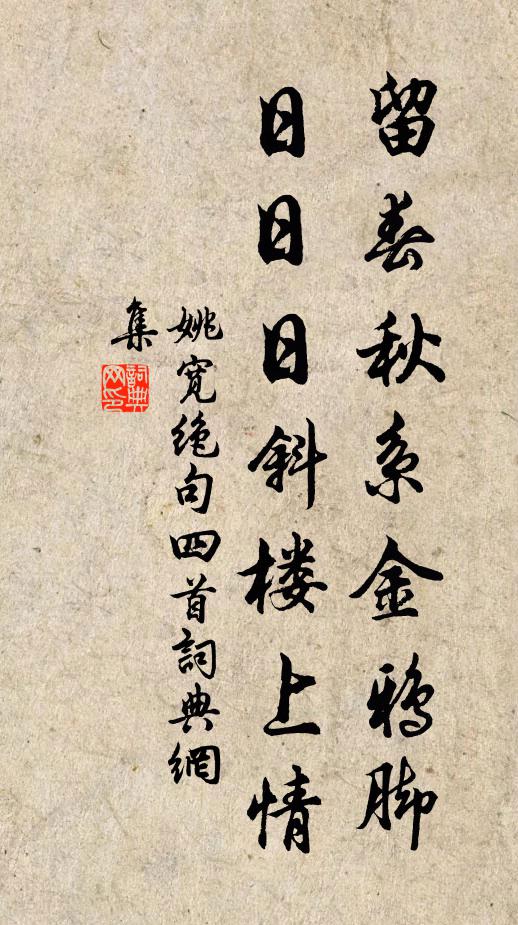 留春秋系金鸦脚
日日日斜楼上情
姚寬绝句四首詞典網
集
詞典
网印